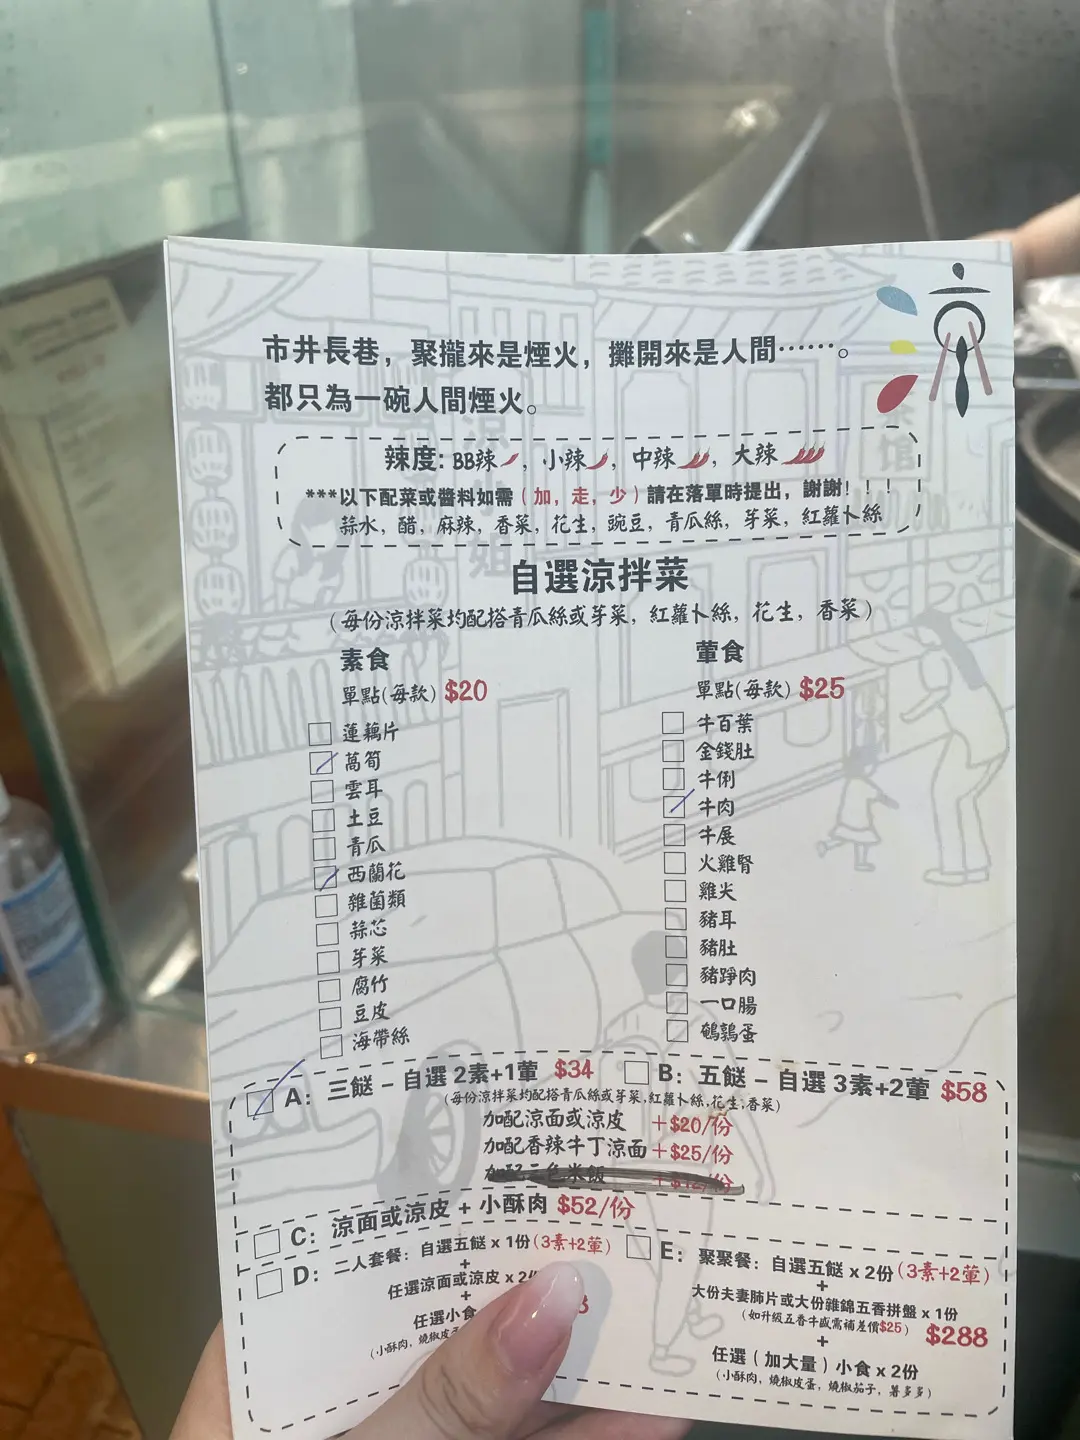 市井長巷，聚攏來是煙火，攤開來是人間……。
都只為一碗人間煙火。
辣度: BB辣，小辣，中辣，大辣
***以下配菜或醬料如需（加，走，少）請在落單時提出，謝謝！！！
蒜水，醋，麻辣，香菜，花生，豌豆，青瓜絲，芽菜，紅蘿卜絲
自選涼拌菜
（每份涼拌菜均配搭青瓜絲或芽菜，紅蘿卜絲，花生，香菜）
素食
單點(每款) $20
蓮藕片
萵筍
雲耳
土豆
青瓜
西蘭花
雜菌類
蒜芯
芽菜
腐竹
豆皮
海帶絲
葷食
單點(每款) $25
牛百葉
金錢肚
牛俐
牛肉
牛展
火雞腎
雞尖
豬耳
豬肚
豬踭肉
一口腸
鵪鶉蛋
A：三餸 – 自選2素+1葷 $34
B：五餸 – 自選3素+2葷 $58
(每份涼拌菜均配搭青瓜絲或芽菜,紅蘿卜絲,花生,香菜)
加配涼面或涼皮 +$20/份
加配香辣牛丁涼面 +$25/份
C：涼面或涼皮 + 小酥肉 $52/份
D：二人套餐：自選五餸 x 1份(3素+2葷)
+
任選涼面或涼皮 x 2
+
任選小食
(小酥肉，燒椒皮
E：聚聚餐：自選五餸 x 2份(3素+2葷)
+
大份夫妻肺片或大份雜錦五香拼盤 x 1份
(如升級五香牛𦟌需補差價$25) $288
+
任選（加大量）小食 x 2份
(小酥肉，燒椒皮蛋，燒椒茄子，薯多多)